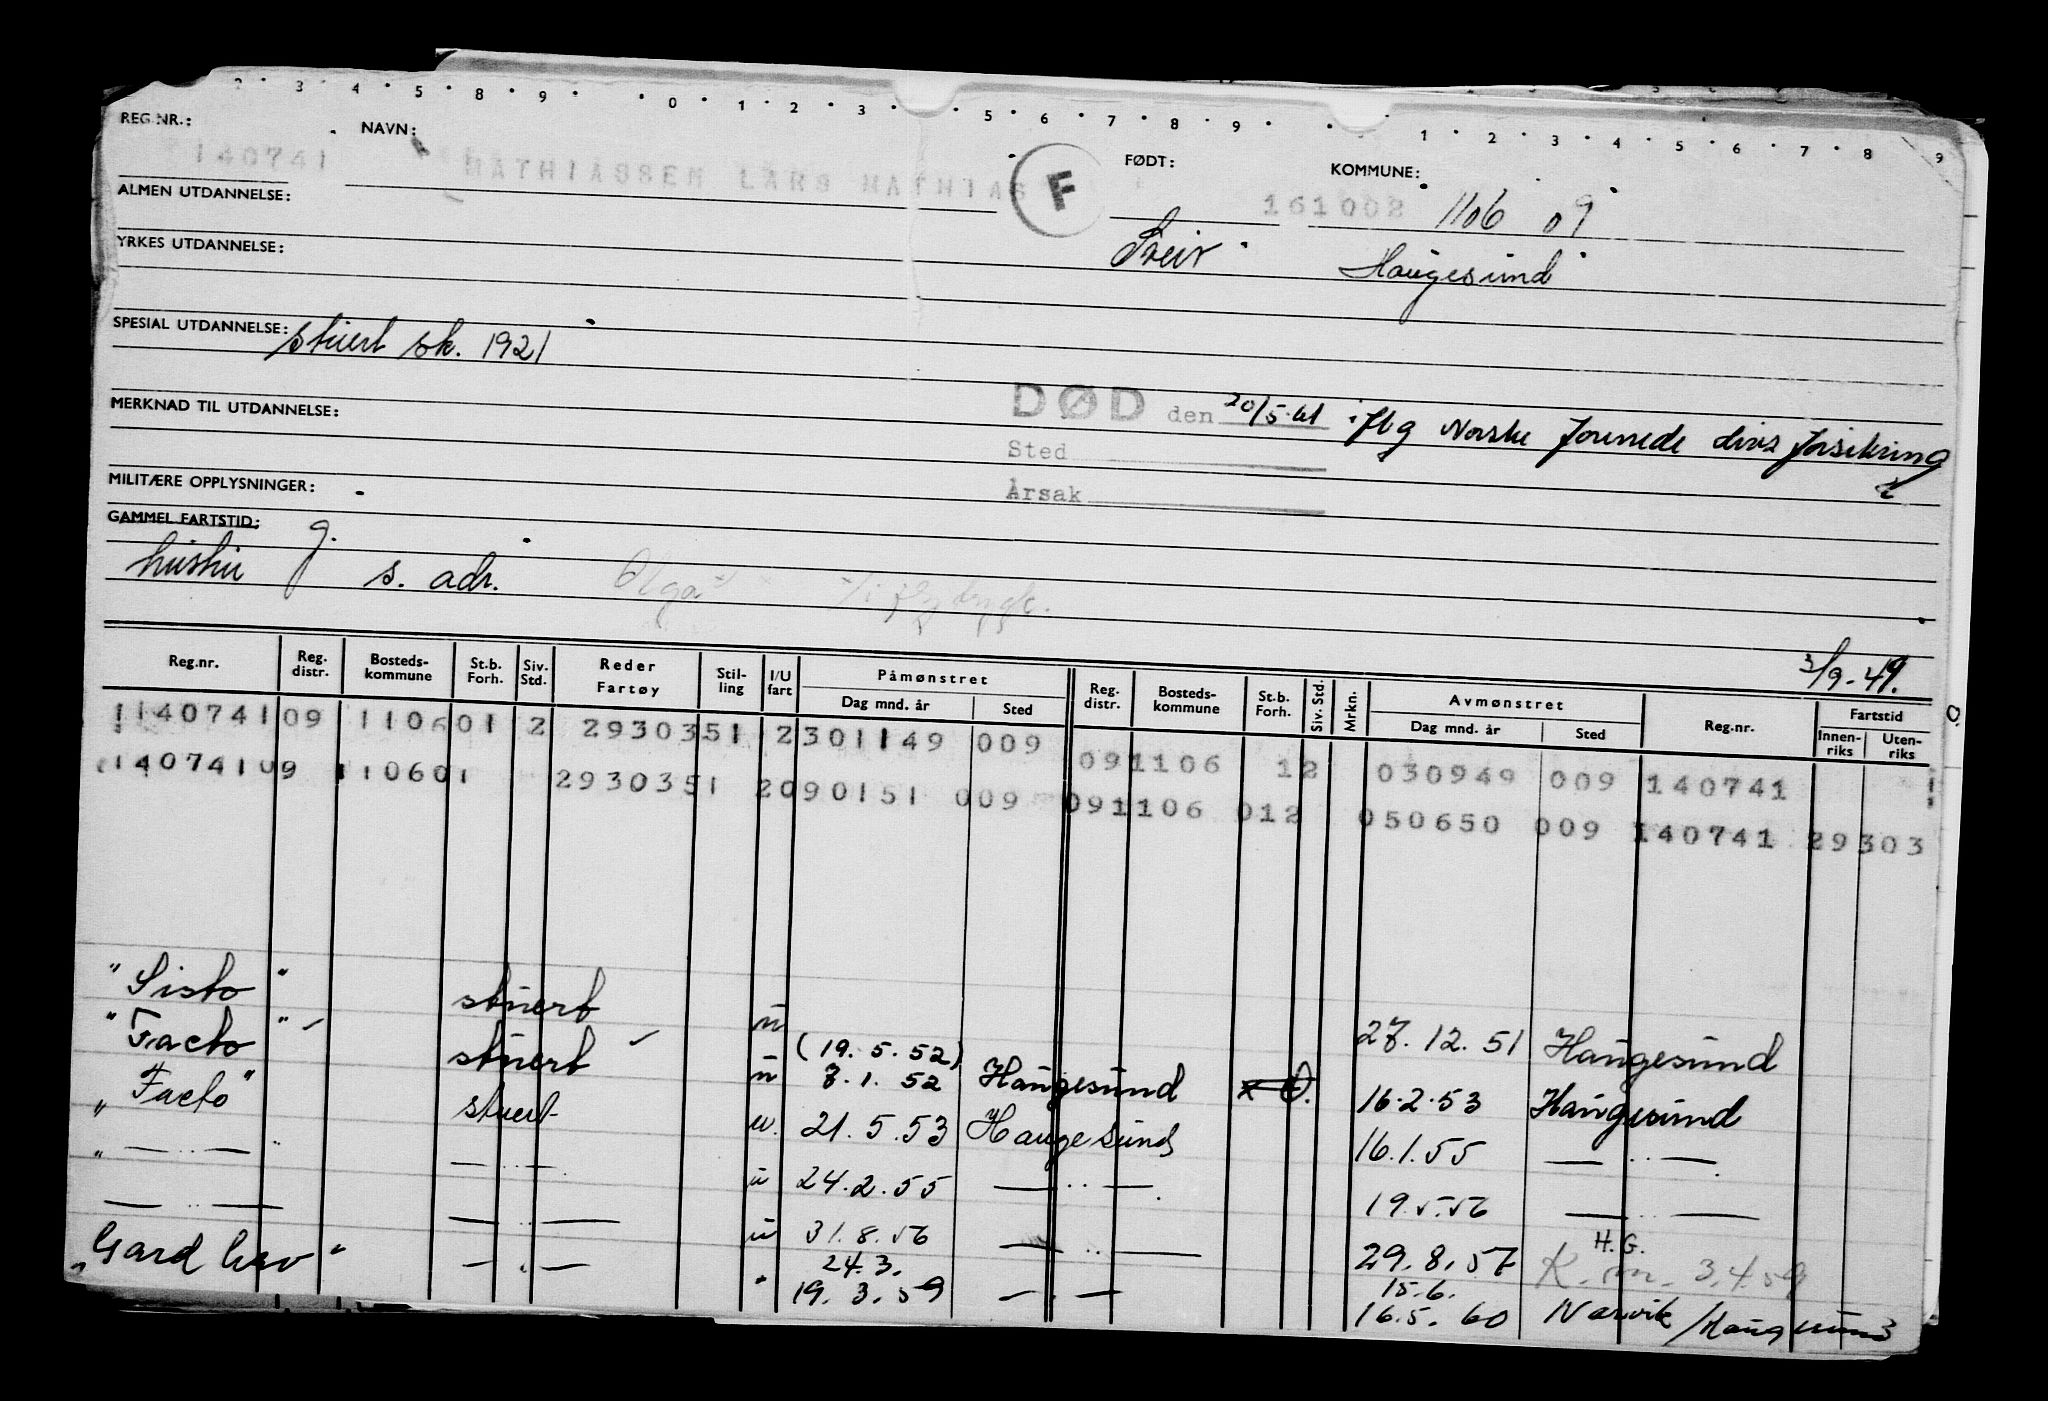 2 3 4 5 8 9 0 1 2 3 5 6 7 8 9 1 2 3 4 5 6 7 8 9
REG.NR.: NAVN: FØDT: KOMMUNE:
140741 MATHIASSEN LARS MATHIAS F 161002 1106 09
ALMEN UTDANNELSE:
YRKES UTDANNELSE: Haugesund
SPESIAL UTDANNELSE: stuert sk. 1921
MERKNAD TIL UTDANNELSE: DØD den 20/5.61 iflg Norske Forenede Livs forsikring
Sted
MILITÆRE OPPLYSNINGER: Årsak
GAMMEL FARTSTID: g.
hustru s. adr. Olga
3/9-49.
Reg.nr. Reg. distr. Bosteds-kommune St.b. Forh. Siv. Std. Reder Fartøy Stil-ling I/U fart Påmønstret Dag mnd. år Sted Reg. distr. Bosteds-kommune St.b. Forh. Siv. Std. Mrkn. Avmønstret Dag mnd. år Sted Reg.nr. Fartstid Innen-riks Uten-riks
140741 09 1106 01 2 2930351 2 301149 009 09 1106 12 030949 009 140741
140741 09 1106 01 2930351 2 090151 009 09 1106 012 050650 009 140741 29303
"Sisto" stuert u 27.12.51 Haugesund
"Facto" stuert u (19.5.52)
7.1.52 Haugesund 16.2.53 Haugesund
"Facto" stuert u. 21.5.53 Haugesund 16.1.55 — .. —
" — .. — " — .. — u 24.2.55 — .. — 19.5.56 — .. —
— .. — — .. — u 31.8.56 — .. — 29.8.57 H.G.
K. m. 3.4.59
24.3. 15.6.
— .. — " 19.3.59 — .. — 16.5.60 Narvik/Haugesund